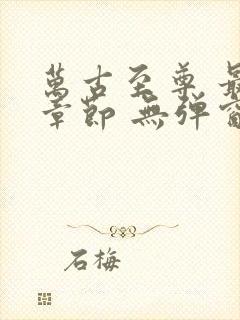 萬古至尊 最
章節 無彈窗
石梅